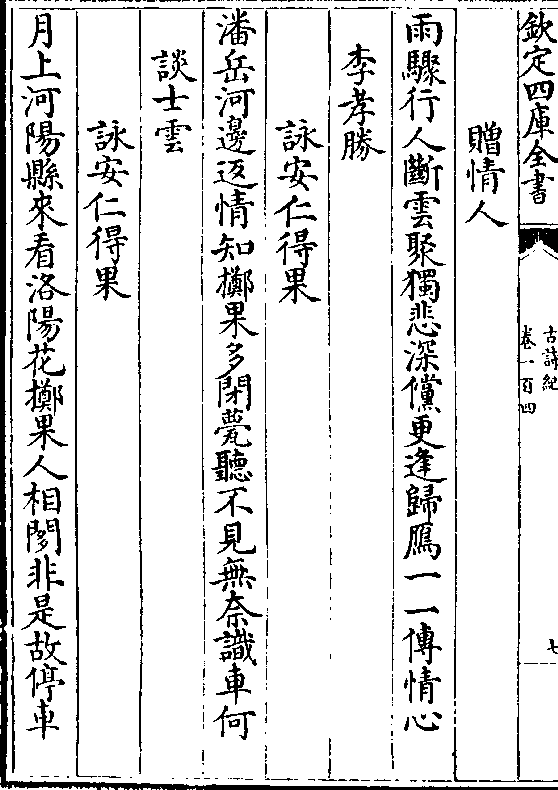 欽定四庫全書
古詩紀
卷一百四
七
贈情人
雨驟行人斷雲聚獨悲深儻更逢歸鴈一一傳情心
李孝勝
詠安仁得果
潘岳河邊返情知擲果多閉甍聽不見無奈識車何
談士雲
詠安仁得果
月上河陽縣來看洛陽花擲果人相閙非是故停車